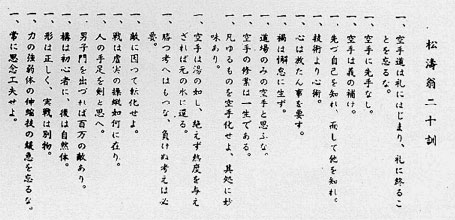 松濤翁二十訓
一、空手道は礼にはじまり、礼に終るこ
とを忘るな。
一、空手に先手なし。
一、空手は義の補け。
一、先づ自己を知れ而して他を知れ。
一、技術より心術。
一、心は放たん事を要す。
一、禍は懈怠に生ず。
一、道場のみの空手と思ふな。
一、空手の修業は一生である。
一、凡ゆるものを空手化せよ、其処に妙
味あり。
一、空手は湯の如し、絶えず熱度を与え
ざれば元の水に還る。
一、勝つ考へはもつな、負けぬ考えは必
要。
一、敵に因って転化せよ。
一、戦は虚実の操縦如何に在り。
一、人の手足を剣と思へ。
一、男子門を出づれば百万の敵あり。
一、構は初心者に、後は自然体。
一、形は正しく、実戦は別物。
一、力の強弱体の伸縮技の緩急を忘るな。
一、常に思念工夫せよ。